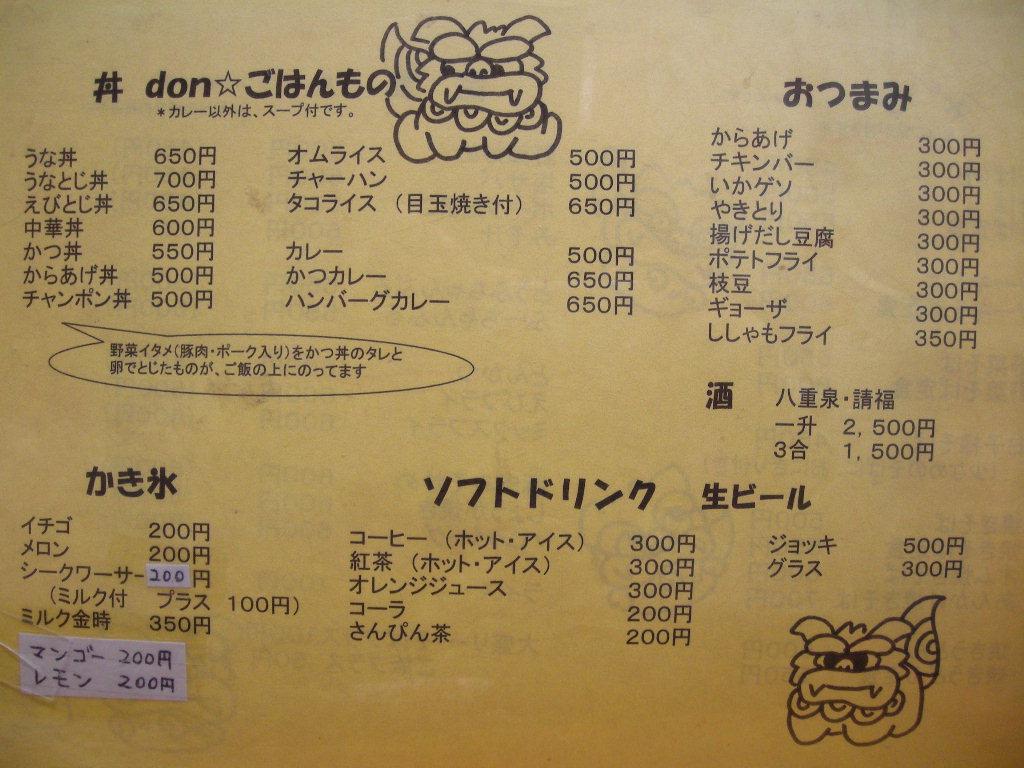 丼 don☆ごはんもの
＊カレー以外は、スープ付です。
うな丼 650円
うなとじ丼 700円
えびとじ丼 650円
中華丼 600円
かつ丼 550円
からあげ丼 500円
チャンポン丼 500円
野菜イタメ(豚肉・ポーク入り)をかつ丼のタレと
卵でとじたものが、ご飯の上にのってます
オムライス 500円
チャーハン 500円
タコライス (目玉焼き付) 650円
カレー 500円
かつカレー 650円
ハンバーグカレー 650円
おつまみ
からあげ 300円
チキンバー 300円
いかゲソ 300円
やきとり 300円
揚げだし豆腐 300円
ポテトフライ 300円
枝豆 300円
ギョーザ 300円
ししゃもフライ 350円
酒 八重泉・請福
一升 2,500円
3合 1,500円
かき氷
イチゴ 200円
メロン 200円
シークワーサー 200円
(ミルク付 プラス 100円)
ミルク金時 350円
マンゴー 200円
レモン 200円
ソフトドリンク
コーヒー (ホット・アイス) 300円
紅茶 (ホット・アイス) 300円
オレンジジュース 300円
コーラ 200円
さんぴん茶 200円
生ビール
ジョッキ 500円
グラス 300円